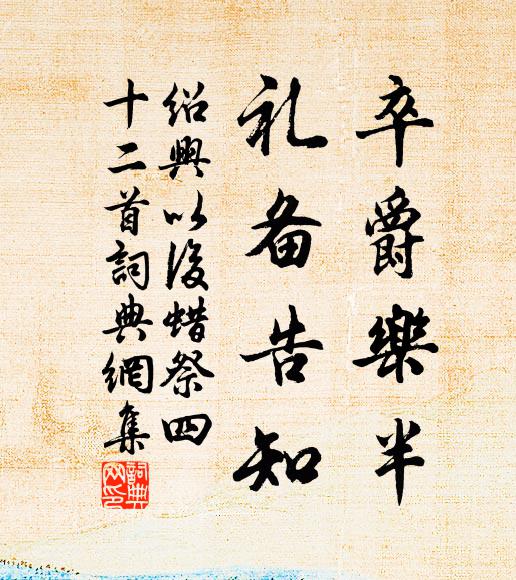 卒爵樂半
礼备告知
绍興以後蜡祭四
十二首詞典網集
詞典网印